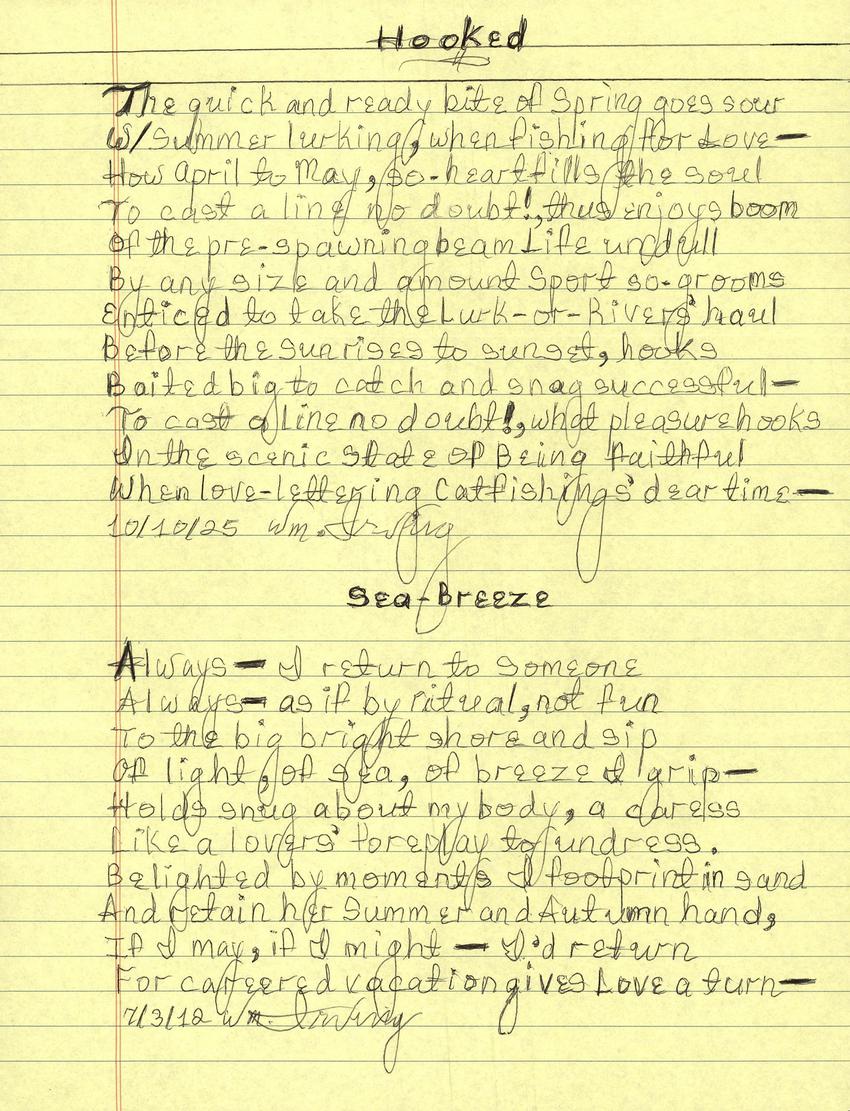 Hooked
The quick and ready bite of Spring goes sour
W/Summer lurking, when fishing ffor Love—
How April to May, so-heart fills the soul
To cast a line no doubt!, thus enjoys boom
Of the pre-spawning beam Life undull
By any size and amount Sport so-grooms
Enticed to take the Lurk-or-Rivers' haul
Before the sun rises to sunset, hooks
Baited big to catch and snag successful—
To cast a Line no doubt!, what pleasure hooks
In the scenic State of Being faithful
When love-lettering Catfishings' dear time—
10/10/25 Wm.
Sea-Breeze
Always— I return to someone
Always— as if by ritual, not fun
To the big bright shore and sip
Of light, of sea, of breeze I grip—
Holds snug about my body, a caress
Like a lovers' foreplay to undress.
Belighted by moments I footprint in sand
And retain her Summer and Autumn hand,
If I may, if I might — I'd return
For careered vacation gives Love a turn—
7/3/12 Wm.